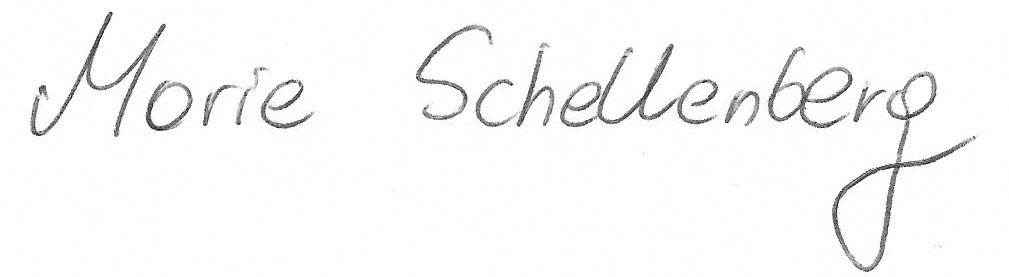 Morie Schellenberg